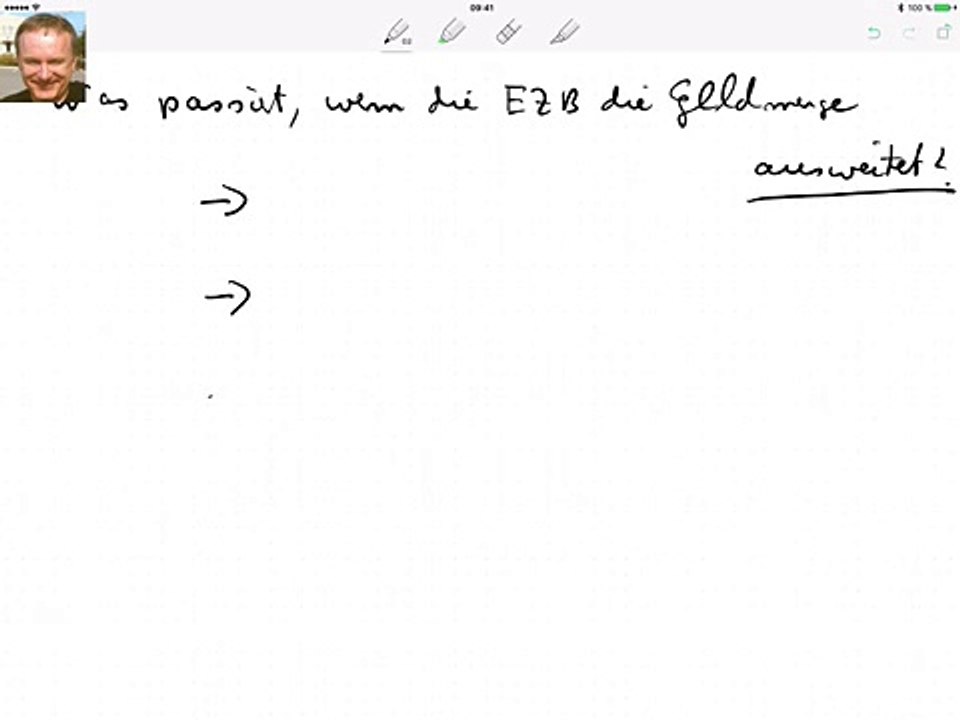 09:41 100 %
Was passiert, wenn die EZB die Geldmenge
ausweitet?
→
→